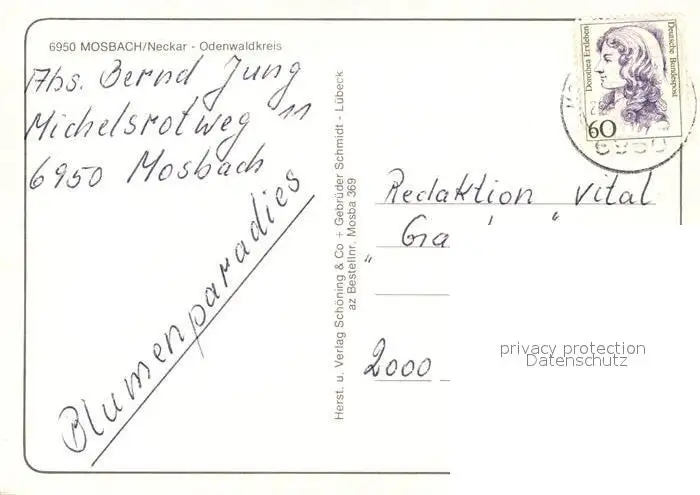 6950 MOSBACH/Neckar - Odenwaldkreis
Abs. Bernd Jung
Michelsrotweg 11
6950 Mosbach
Blumenparadies
Herst. u. Verlag Schöning & Co + Gebrüder Schmidt - Lübeck
az Bestellnr. Mosba 369
Dorothea Erxleben
Deutsche Bundespost
60
6950
Redaktion Vital
"Ga
2000
privacy protection
Datenschutz